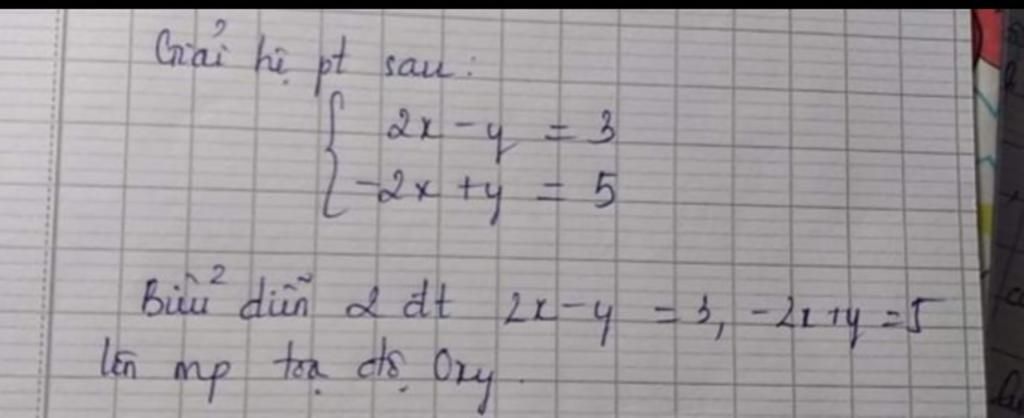 Giải hệ pt sau:
2x - y = 3
-2x + y = 5
Biểu diễn 2 đt 2x - y = 3, -2x + y = 5
lên mp toạ độ Oxy.